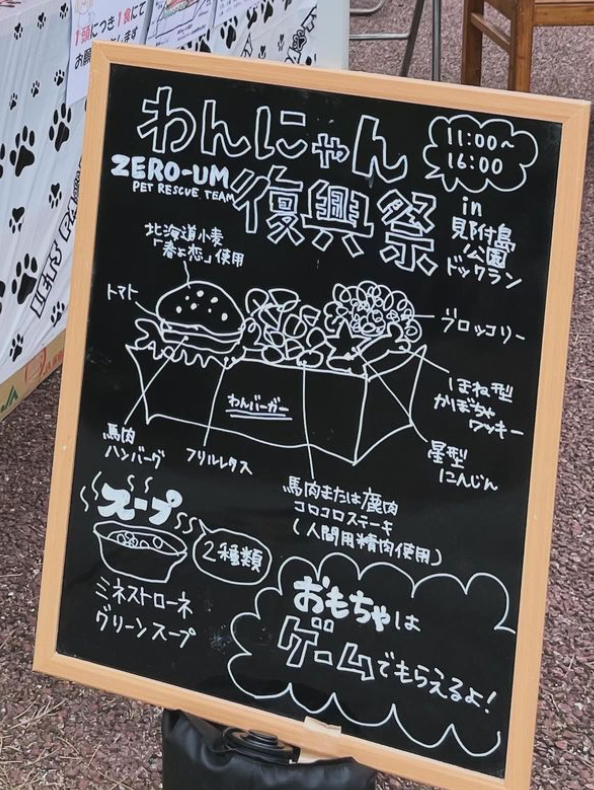 1頭につき1食にて
お願い します
わんにゃん
11:00~
16:00
ZERO-UM
PET RESCUE TEAM
復興祭
in
見附島
公園
ドッグラン
北海道小麦
「春よ恋」使用
トマト
ブロッコリー
ほね型
かぼちゃ
クッキー
わんバーガー
星型
にんじん
馬肉
ハンバーグ
フリルレタス
馬肉または鹿肉
コロコロステーキ
(人間用精肉使用)
スープ
2種類
ミネストローネ
グリーンスープ
おもちゃは
ゲームでもらえるよ!